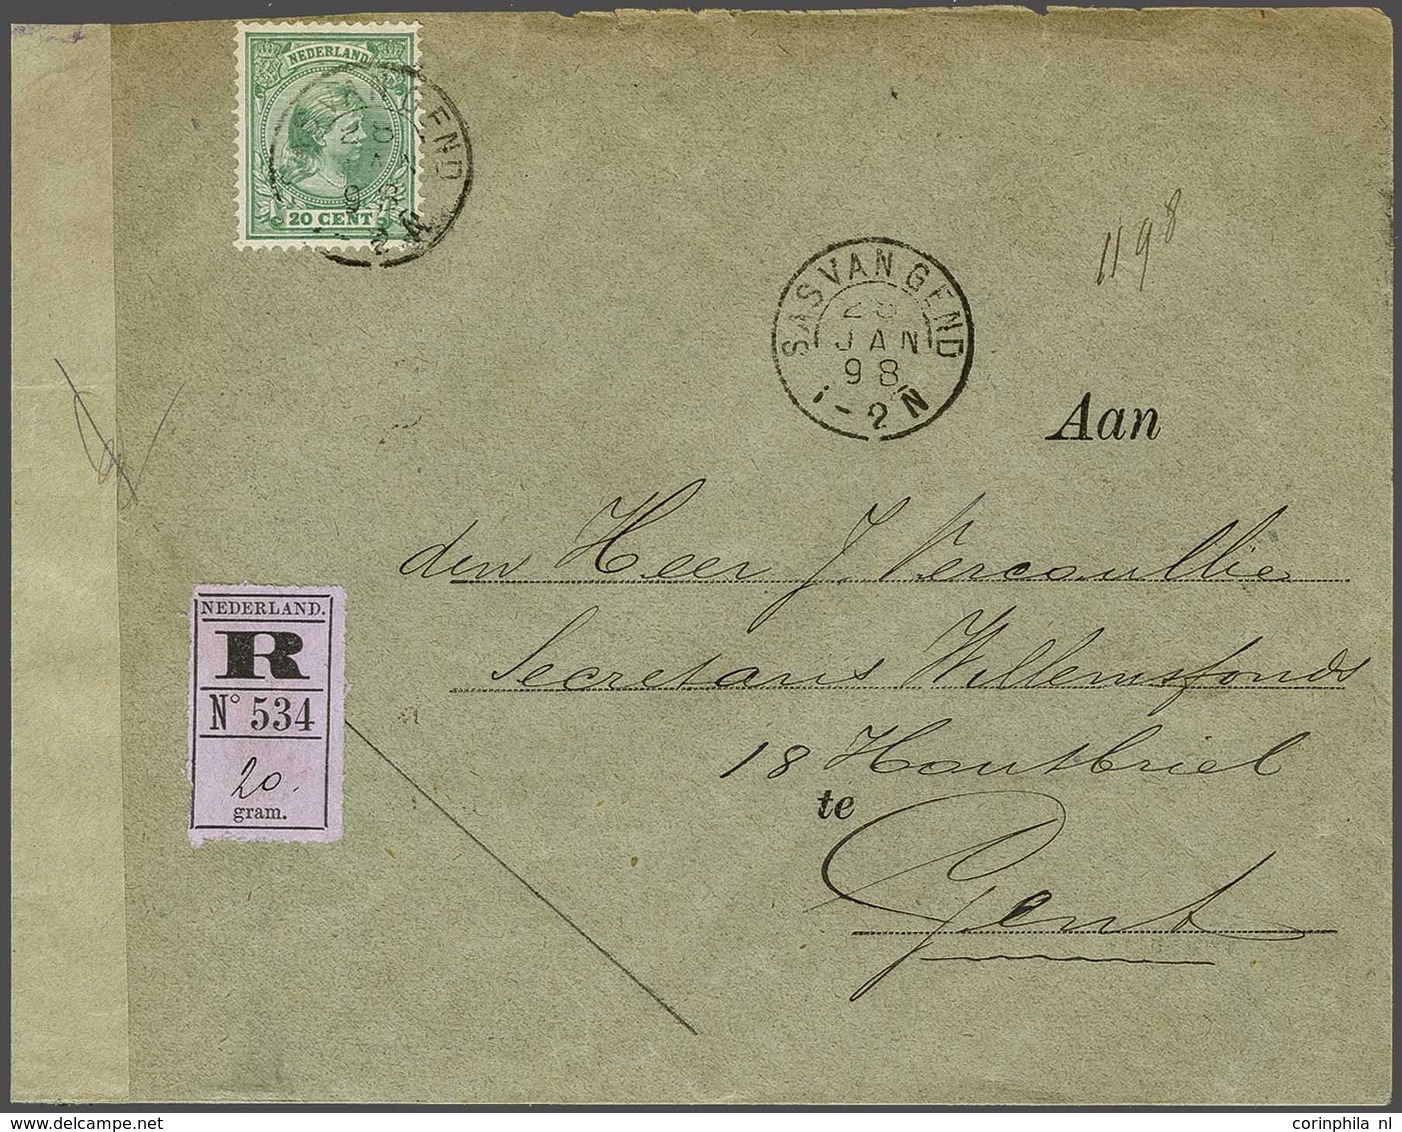 NEDERLAND
20 CENT
SAS VAN GEND
28
JAN
98
1-2N
1198
Aan
den Heer J. Vercoullie
Secretaris Willemsfonds
18 Houtbriel
te
Gent
NEDERLAND.
R
N° 534
20.
gram.
corinphila nl